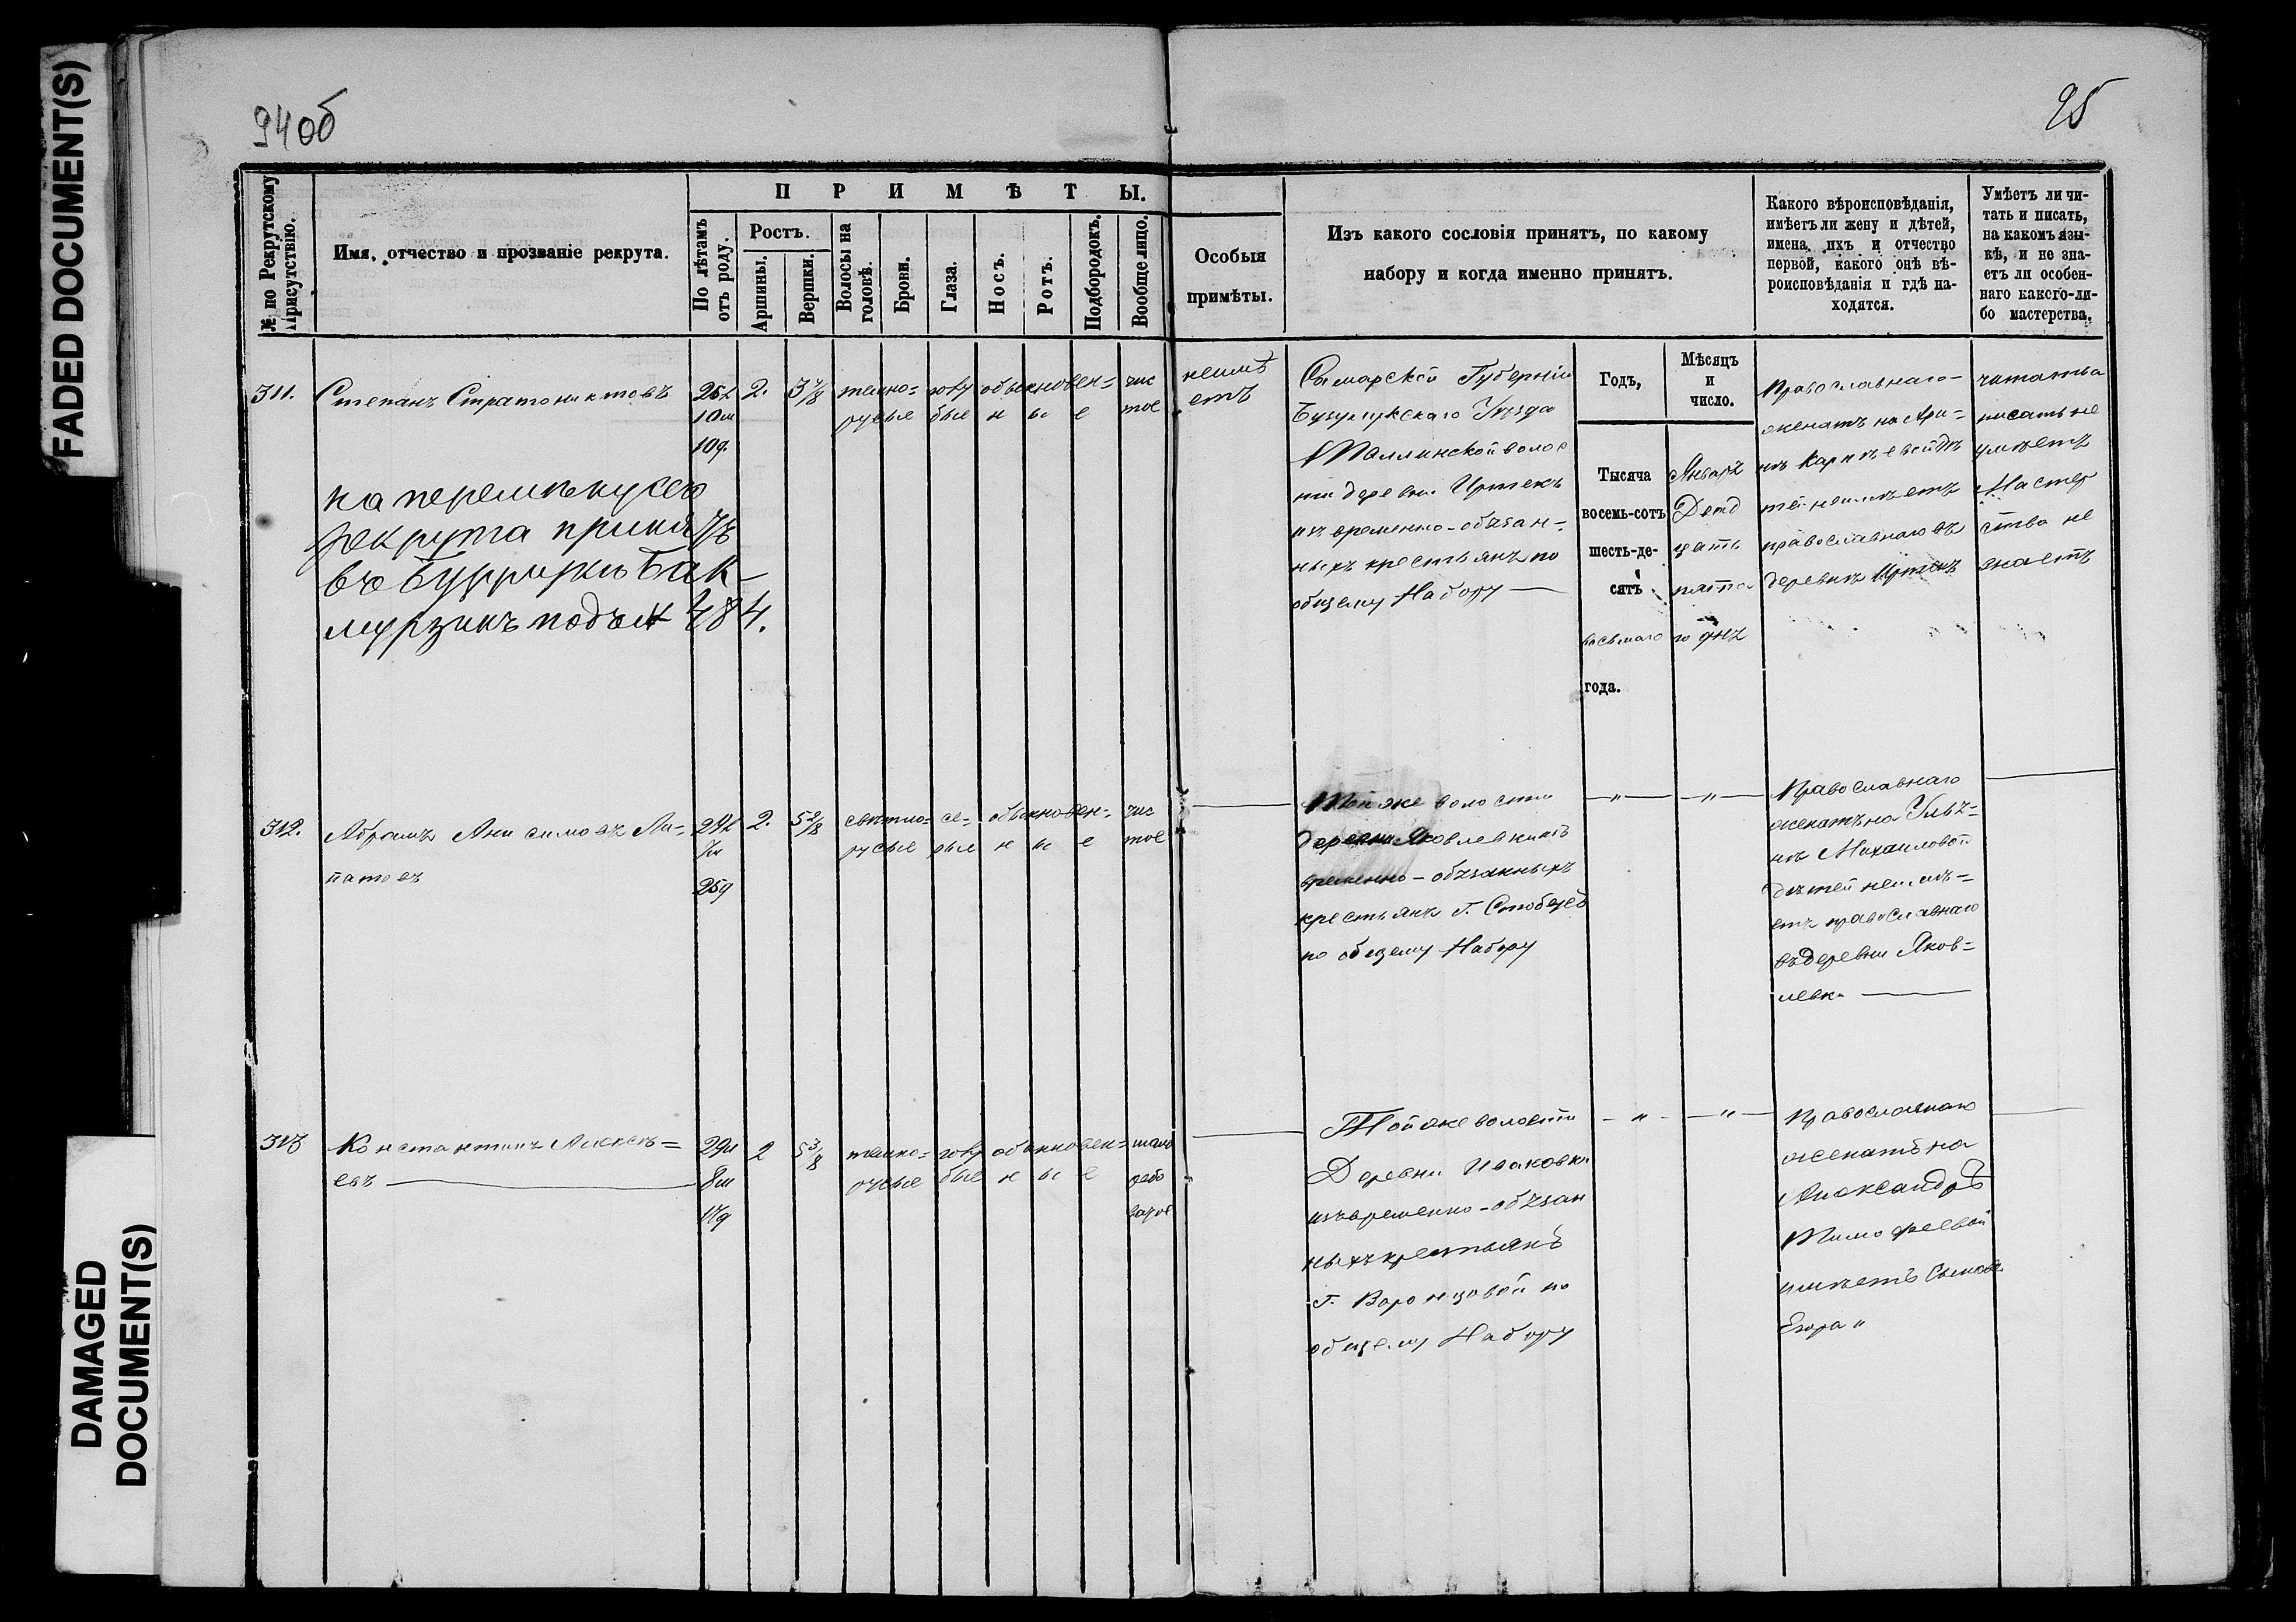 FADED DOCUMENT(S)
DAMAGED
DOCUMENT(S)
94об
95
№ по Рекрутскому
Присутствію.
Имя, отчество и прозваніе рекрута.
ПРИМѢТЫ.
По лѣтамъ
отъ роду.
Ростъ.
Аршины.
Вершки.
Волосы на
головѣ.
Брови.
Глаза.
Носъ.
Ротъ.
Подбородокъ.
Вообще лицо.
Особыя
примѣты.
Изъ какого сословія принятъ, по какому
набору и когда именно принятъ.
Какого вѣроисповѣданія,
имѣетъ ли жену и дѣтей,
имена ихъ и отчество
первой, какого онѣ вѣ-
роисповѣданія и гдѣ на-
ходятся.
Умѣетъ ли чи-
тать и писать,
на какомъ язы-
кѣ, и не зна-
етъ ли особен-
наго какого-ли-
бо мастерства.
311.
Степанъ Стратониктовъ
25л
10м
10д.
2.
3 7/8
темно=
русые
голу
бые
обыкновен=
н ы е
чис
тое
на перемѣну сего
рекрута принятъ
въ Бак-
мурзинъ подъ № 484.
неимѣ
етъ
Самарской Губерніи
Бузулукскаго Уѣзда
Таллинской воло с
ти деревни Иртекъ
изъ временно-обязан-
ныхъ крестьянъ по
общему Набору
Годъ,
Тысяча
восемь-сотъ
шесть-де-
сятъ
восьмаго
года.
Мѣсяцъ
и
число.
Января
Двад
цать
пята
го дня
Православнаго
женатъ на Ари=
нѣ Карпѣевой дѣ
тей неимѣетъ
православнаго въ
деревнѣ Иртекъ
читать и
писать не
умѣетъ
Мастер
ства не
знаетъ
312.
Абрамъ Анисимовъ Ли=
патовъ
24л
7м
25д
2.
5 2/8
свѣтло=
русые
се=
рые
обыкновен=
н ы е
чис
тое
Той же волости
деревни Яковлевки изъ
временно-обязанныхъ
крестьянъ Г. Стобеусъ
по общему Набору
"
"
Православнаго
женатъ на Улья=
нѣ Михаиловой
дѣтей неимѣ=
етъ православнаго
въ деревни Яков=
левкѣ
313
Константинъ Алексѣ=
евъ
29л
8м
17д
2
5 3/8
темно=
русые
голу
бые
обыкновен=
н ы е
мало
рябо
ватое
Той же волости
Деревни Ивановки
изъ временно-обязан
ныхъ крестьянъ
Г. Воронцовой по
общему Набору
"
"
Православнаго
женатъ на
Александрѣ
Тимофеевой
имѣетъ Сына
Егора "